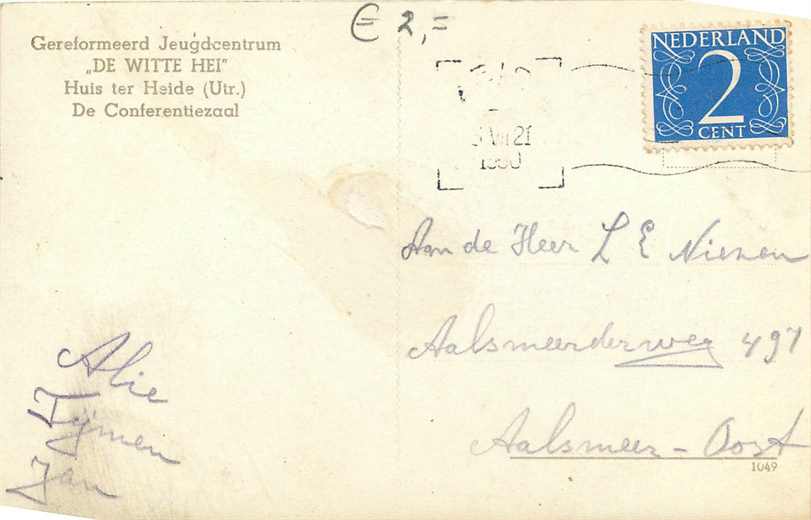 € 2,=
Gereformeerd Jeugdcentrum
„DE WITTE HEI"
Huis ter Heide (Utr.)
De Conferentiezaal
NEDERLAND
2
CENT
21
Aan de Heer L E Niezen
Aalsmeerderweg 491
Aalsmeer-Oost
1049
Alie
Tymen
Jan